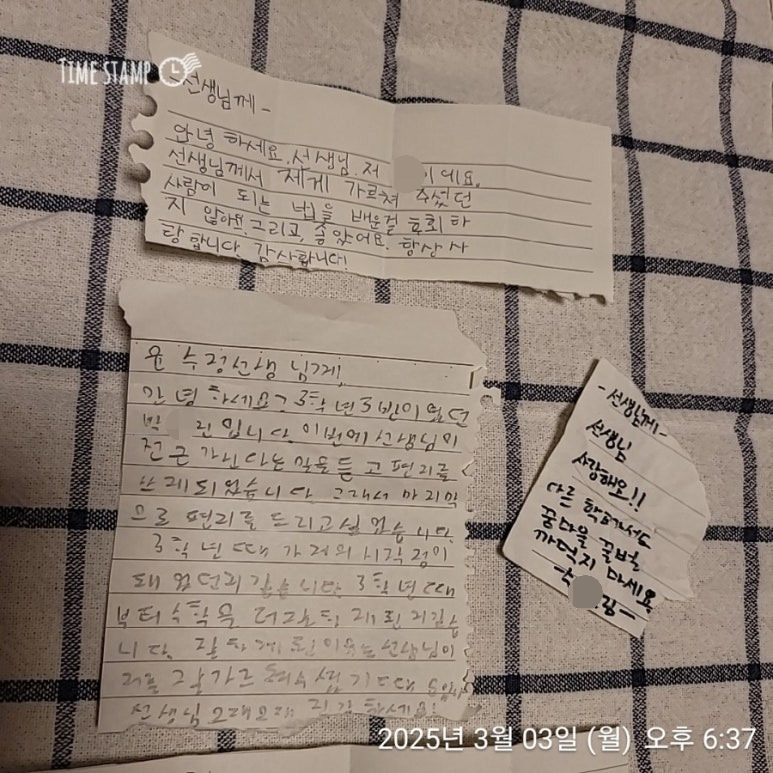 TIME STAMP
선생님께-
안녕하세요. 선생님. 저 이에요.
선생님께서 제게 가르쳐 주셨던
사람이 되는 법을 배운걸 후회하
지 않아요. 그리고, 좋았어요. 항상 사
랑합니다. 감사합니다!
윤수정선생님께,
안녕하세요 3학년3반이었던
박 린입니다 이번에 선생님이
전근 가신다는 말을 듣고 편리를
쓰게되었습니다. 그래서 마지막
으로 편리를 드리고싶었습니다.
3학년때 가 저의 시작점이
돼었던거 같습니다 3학년때
부터 수학을 더 잘하게 된거같습
니다. 잘하게 된 이유는 선생님이
저를 그렇게
선생님 오래오래
-선생님께-
선생님
사랑해요!!
다른 학교가서도
꿀다을 꿀벌
까먹지 마세요
2025년 3월 03일 (월) 오후 6:37